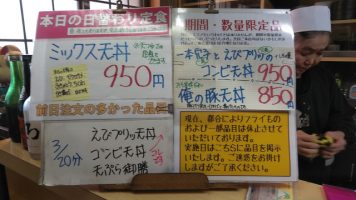 本日の日替わり定食
ミックス天丼
950円
前日注文の多かった品
3/20分
えびプリッ天丼
コンビ天丼
天ぷら御膳
期間・数量限定品
一本穴子とえびプリッの
コンビ天丼 950円
俺の豚天丼 850円
現在、都合によりフライもの
および一部品目は休止させて
いただいております。
実施日はこちらに品目を掲示
いたします。ご迷惑をお掛け
しますがご了承ください。